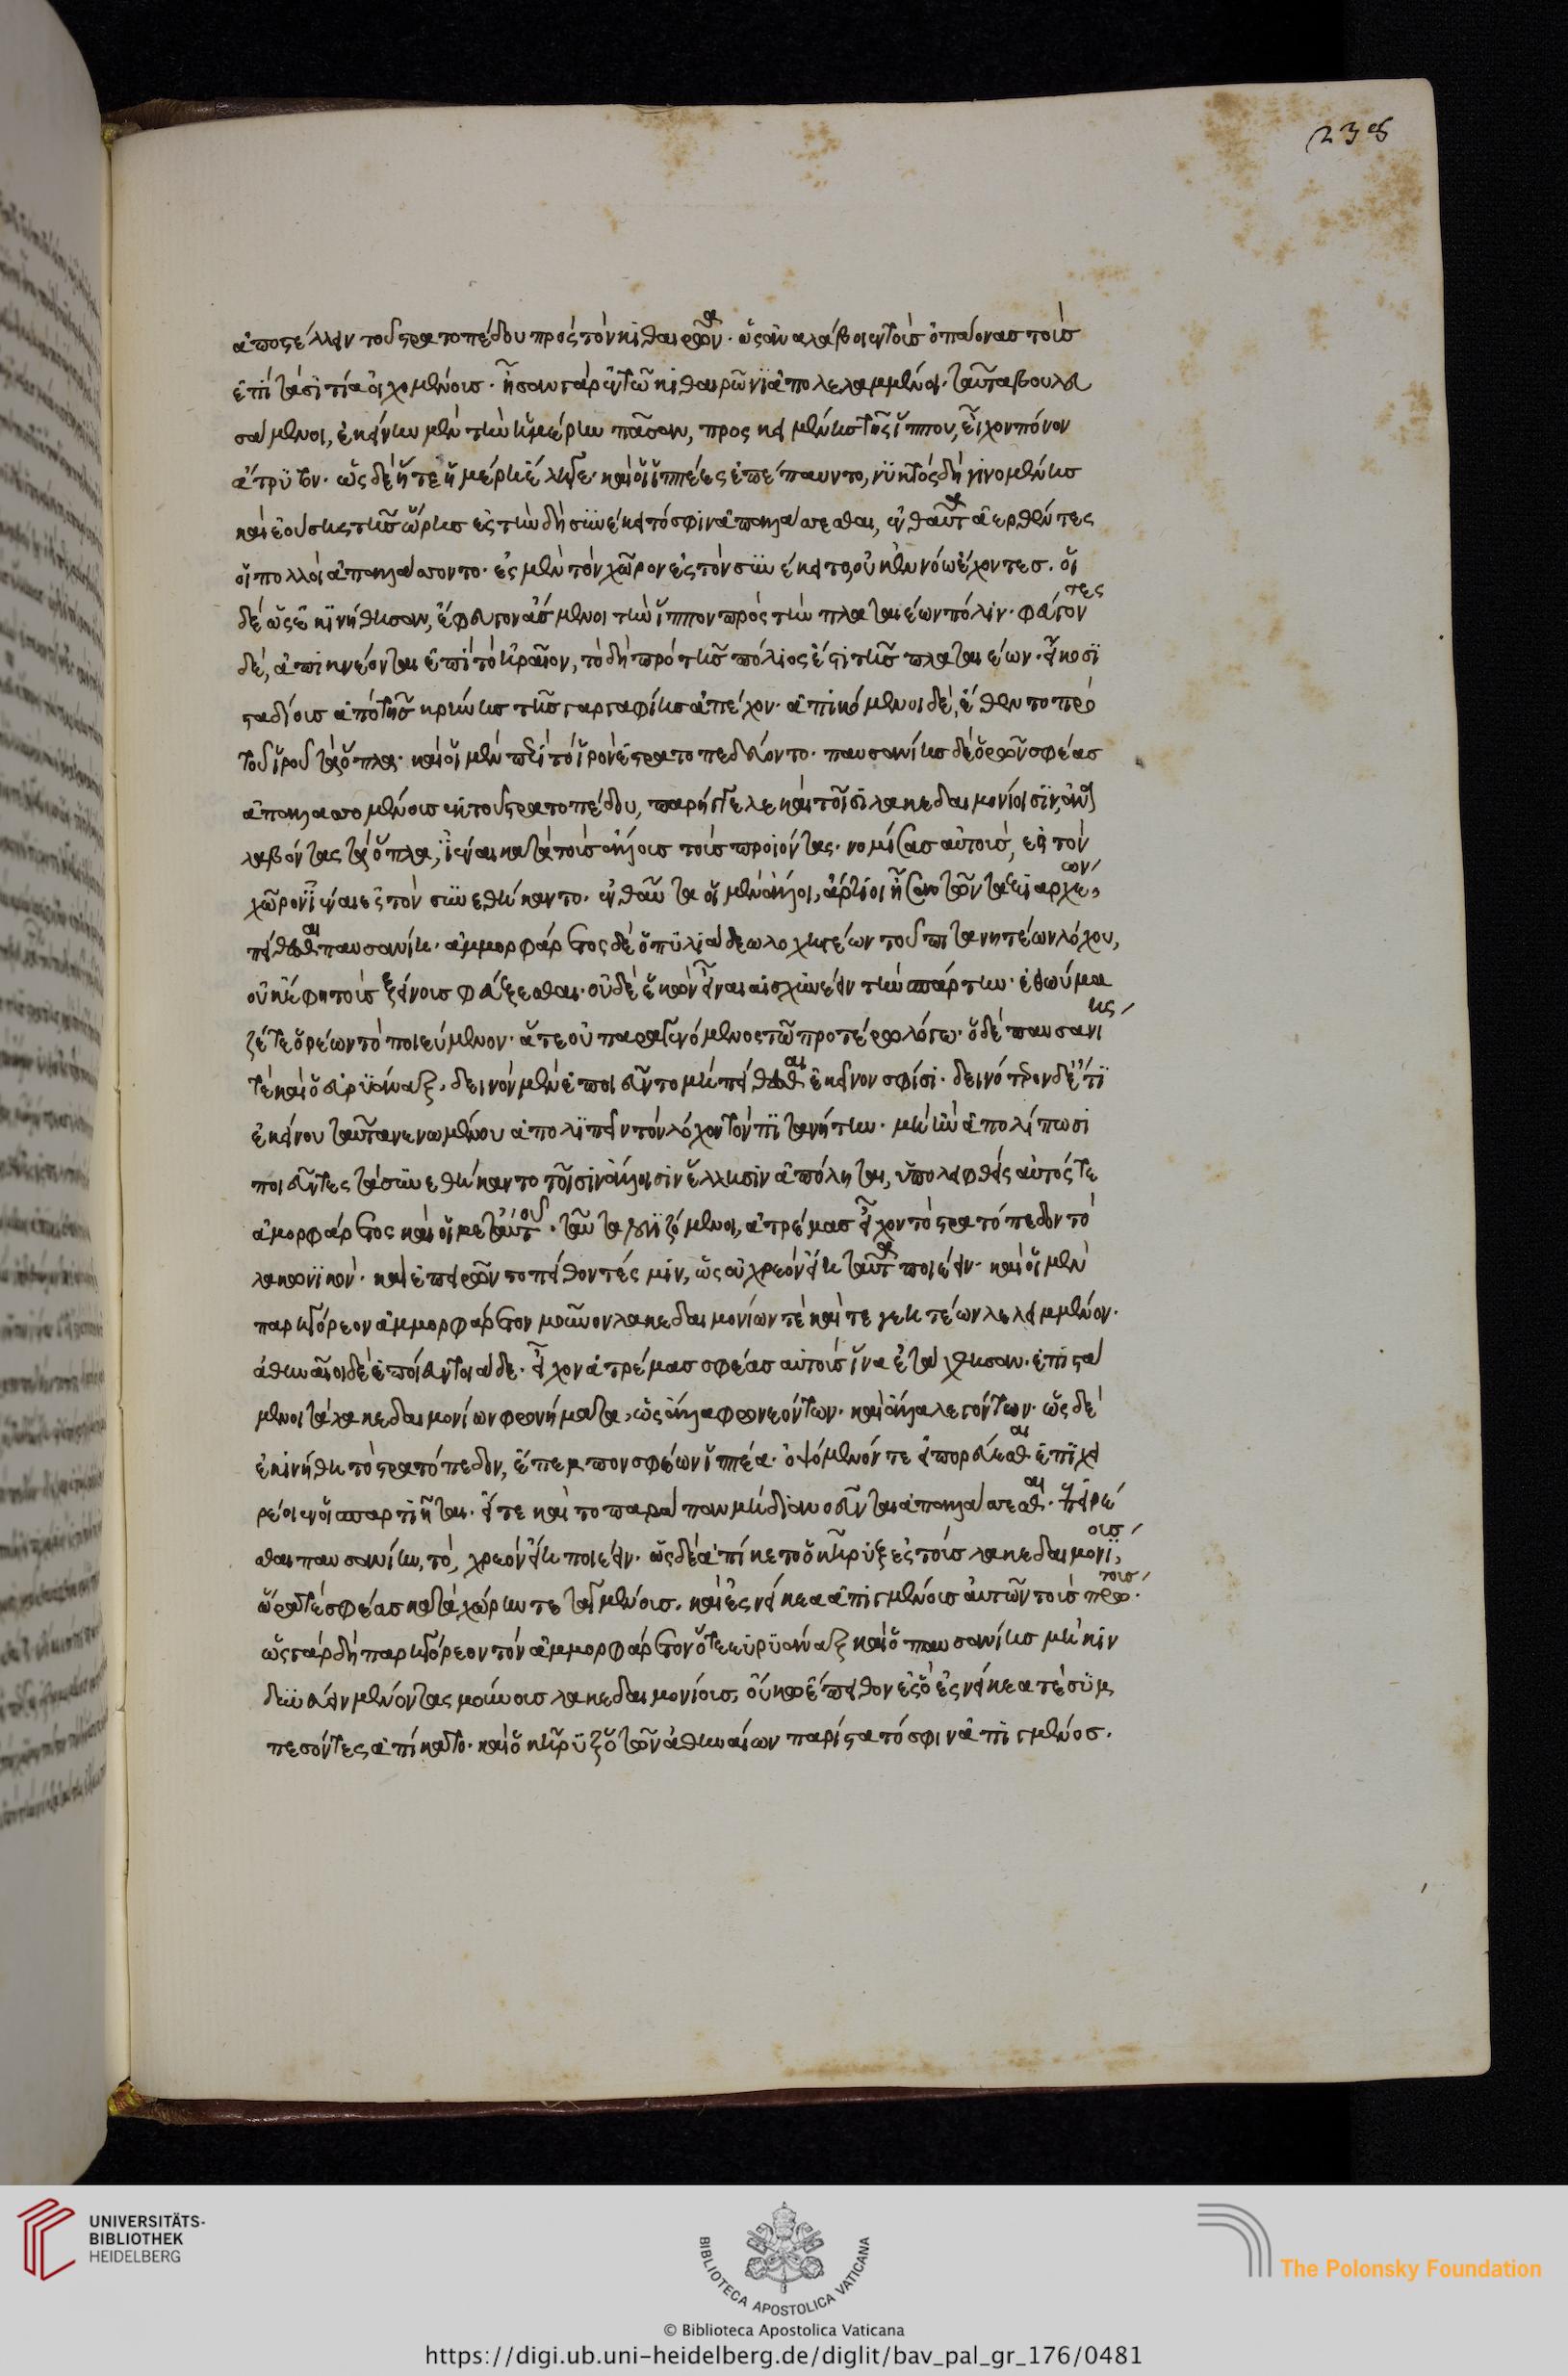 238
ἀποστέλλειν τοῦ στρατοπέδου πρὸς τὸν κιθαιρῶνα. ὡς ἀναλάβοιεν τοὺς ὀπάονας τοὺς
ἐπὶ τὰ σιτία οἰχομένους. ἦσαν γὰρ ἐν τῶ κιθαιρῶνι ἀπολελαμμένοι. ταῦτα βουλευ
σάμενοι, ἐκείνην μὲν τὴν ἡμέρην πᾶσαν, προσκειμένης τῆς ἵππου, εἶχον πόνον
ἄτρυτον. ὡς δὲ ἥ τε ἡμέρη ἔληγε. καὶ οἱ ἱππέες ἐπέπαυντο, νυκτὸς δὴ γινομένης
καὶ ἐούσης τῆς ὥρης ἐς τὴν δὴ συνέκειτό σφιν ἀπαλλάσσεσθαι, ἐνθαῦτα ἀερθέντες
οἱ πολλοὶ ἀπαλλάσσοντο. ἐς μὲν τὸν χῶρον ἐς τὸν συνέκειτο, οὐκ ἐν νόω ἔχοντες. οἱ
δὲ ὡς ἐκινήθησαν, ἔφευγον ἄσμενοι τὴν ἵππον πρὸς τὴν πλαταιέων πόλιν. φεύγοντες
δὲ, ἀπικνέονται ἐπὶ τὸ ἡραῖον, τὸ δὴ πρὸ τῆς πόλιός ἐστι τῆς πλαταιέων. εἴκοσι
σταδίους ἀπὸ τῆς κρήνης τῆς γαργαφίης ἀπέχον. ἀπικόμενοι δὲ, ἔθεντο πρὸ
τοῦ ἱροῦ τὰ ὅπλα. καὶ οἱ μὲν περὶ τὸ ἱρὸν ἐστρατοπεδεύοντο. παυσανίης δὲ ὁρῶν σφέας
ἀπαλλασσομένους ἐκ τοῦ στρατοπέδου, παρήγγελε καὶ τοῖσι λακεδαιμονίοισιν, ἀνα
λαβόντας τὰ ὅπλα, ἰέναι κατὰ τοὺς ἄλλους τοὺς προϊόντας. νομίσας αὐτοὺς, ἐς τὸν
χῶρον ἰέναι ἐς τὸν συνεθήκαντο. ἐνθαῦτα οἱ μὲν ἄλλοι, ἄρτιοι ἦσαν τῶν ταξιαρχέων
πείθεσθαι παυσανίη. ἀμμορφάρετος δὲ ὁ πυλιάδεω λοχηγέων τοῦ πιτανητέων λόχου,
οὐκ ἔφη τοὺς ξείνους φεύξεσθαι. οὐδὲ ἑκὼν εἶναι αἰσχυνέειν τὴν σπάρτην. ἐθωύμα
ζέ τε ὁρέων τὸ ποιεύμενον. ἅτε οὐ παραγενόμενος τῶ προτέρω λόγω. ὁ δὲ παυσανίης
τὲ καὶ ὁ εὐρυάναξ, δεινὸν μὲν ἐποιεῦντο μὴ πείθεσθαι ἐκεῖνον σφίσι. δεινότερον δὲ ἔτι
ἐκείνου ταῦτα νενωμένου ἀπολιπεῖν τὸν λόχον τὸν πιτανήτην. μὴ ἢν ἀπολίπωσι
ποιεῦντες τὰ συνεθήκαντο τοῖσιν ἄλλοισιν ἕλλησιν ἀπόληται, ὑπολειφθεὶς αὐτός τε
ἀμορφάρετος καὶ οἱ μετ' αὐτοῦ. ταῦτα λογιζόμενοι, ἀτρέμας εἶχον τὸ στρατόπεδον τὸ
λακωνικόν. καὶ ἐπειρῶντο πείθοντές μιν, ὡς οὐ χρεὸν εἴη ταῦτα ποιέειν. καὶ οἱ μὲν
παρηγόρεον ἀμμορφάρετον μοῦνον λακεδαιμονίων τὲ καὶ τεγεητέων λελειμμένον.
ἀθηναῖοι δὲ ἐποίευν τοιάδε. εἶχον ἀτρέμας σφέας αὐτοὺς ἵνα ἐτάχθησαν. ἐπιστά
μενοι τὰ λακεδαιμονίων φρονήματα, ὡς ἄλλα φρονεόντων. καὶ ἄλλα λεγόντων. ὡς δὲ
ἐκινήθη τὸ στρατόπεδον, ἔπεμπον σφέων ἱππέα. ὀψόμενόν τε εἰ πορεύεσθαι ἐπιχει
ρέοιεν οἱ σπαρτιῆται. εἴτε καὶ τὸ παράπαν μὴ διανοεῦνται ἀπαλλάσσεσθαι. ἐπείρε
σθαι παυσανίην, τὸ, χρεὸν εἴη ποιέειν. ὡς δὲ ἀπίκετο ὁ κῆρυξ ἐς τοὺς λακεδαιμονίους,
ὥρα τέ σφέας κατὰ χώρην τεταγμένους. καὶ ἐς νείκεα ἀπιγμένους αὐτῶν τοὺς πρώτους.
ὡς γὰρ δὴ παρηγόρεον τὸν ἀμμορφάρετον ὅ τε εὐρυάναξ καὶ ὁ παυσανίης μὴ κιν
δυνεύειν μένοντας μούνους λακεδαιμονίους, οὔκω ἔπειθον ἐς ὃ ἐς νείκεά τε συμ
πεσόντες ἀπίκατο. καὶ ὁ κῆρυξ ὁ τῶν ἀθηναίων παρίστατό σφιν ἀπιγμένος.
UNIVERSITÄTS-
BIBLIOTHEK
HEIDELBERG
BIBLIOTECA APOSTOLICA VATICANA
The Polonsky Foundation
© Biblioteca Apostolica Vaticana
https://digi.ub.uni-heidelberg.de/diglit/bav_pal_gr_176/0481